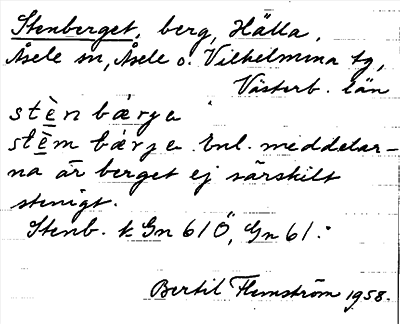 Stenberget, berg, Hälla,
Åsele sn, Åsele o. Vilhelmina tg,
Västerb. län
stèn bærja
stèm bærja. Enl. meddelar-
na är berget ej särskilt
stenigt.
Stenb. k Gn 61Ö, Gn 61.
Bertil Flemström 1958.